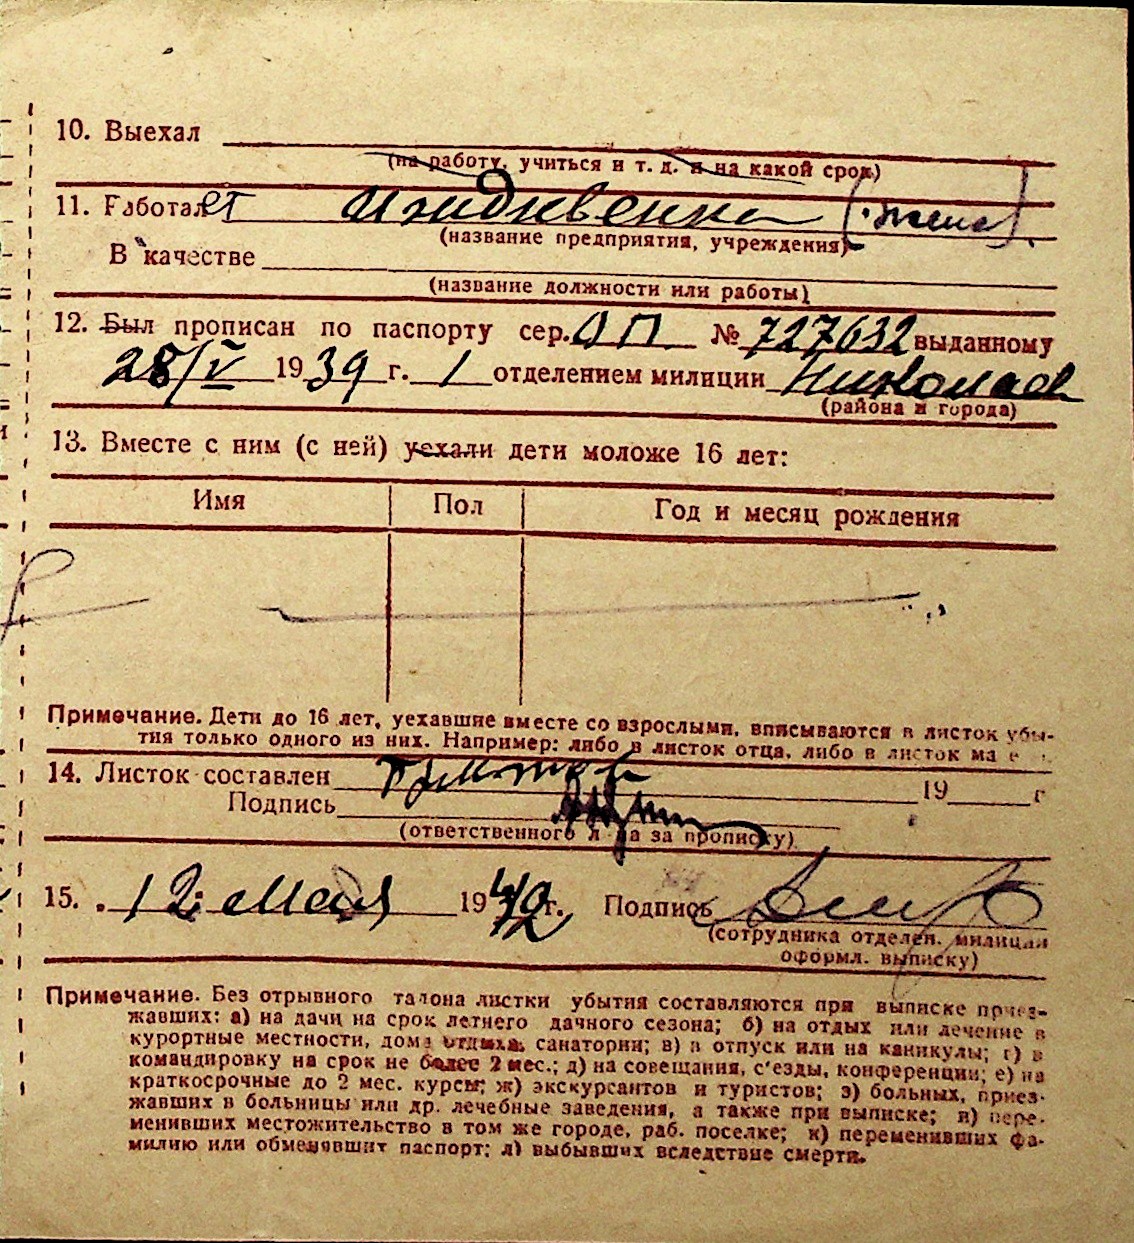 10. Выехал
(на работу, учиться и т. д. и на какой срок)
11. Работает иждивенка (жена)
(название предприятия, учреждения)
В качестве
(название должности или работы)
12. Был прописан по паспорту сер. ОП № 727632 выданному
28/V 1939 г. 1 отделением милиции Николаев
(района и города)
13. Вместе с ним (с ней) уехали дети моложе 16 лет:
Имя Пол Год и месяц рождения
Примечание. Дети до 16 лет, уехавшие вместе со взрослыми, вписываются в листок убы-
тия только одного из них. Например: либо в листок отца, либо в листок
14. Листок составлен 19 г
Подпись
(ответственного за прописку)
15. 12 мая 1942 г. Подпись
(сотрудника отделен. милиции
оформл. выписку)
Примечание. Без отрывного талона листки убытия составляются при выписке приез-
жавших: а) на дачи на срок летнего дачного сезона; б) на отдых или лечение в
курортные местности, дома отдыха, санатории; в) в отпуск или на каникулы; г) в
командировку на срок не более 2 мес.; д) на совещания, с'езды, конференции; е) на
краткосрочные до 2 мес. курсы; ж) экскурсантов и туристов; з) больных, приез-
жавших в больницы или др. лечебные заведения, а также при выписке; и) пере-
менивших местожительство в том же городе, раб. поселке; к) переменивших фа-
милию или обменявших паспорт; л) выбывших вследствие смерти.